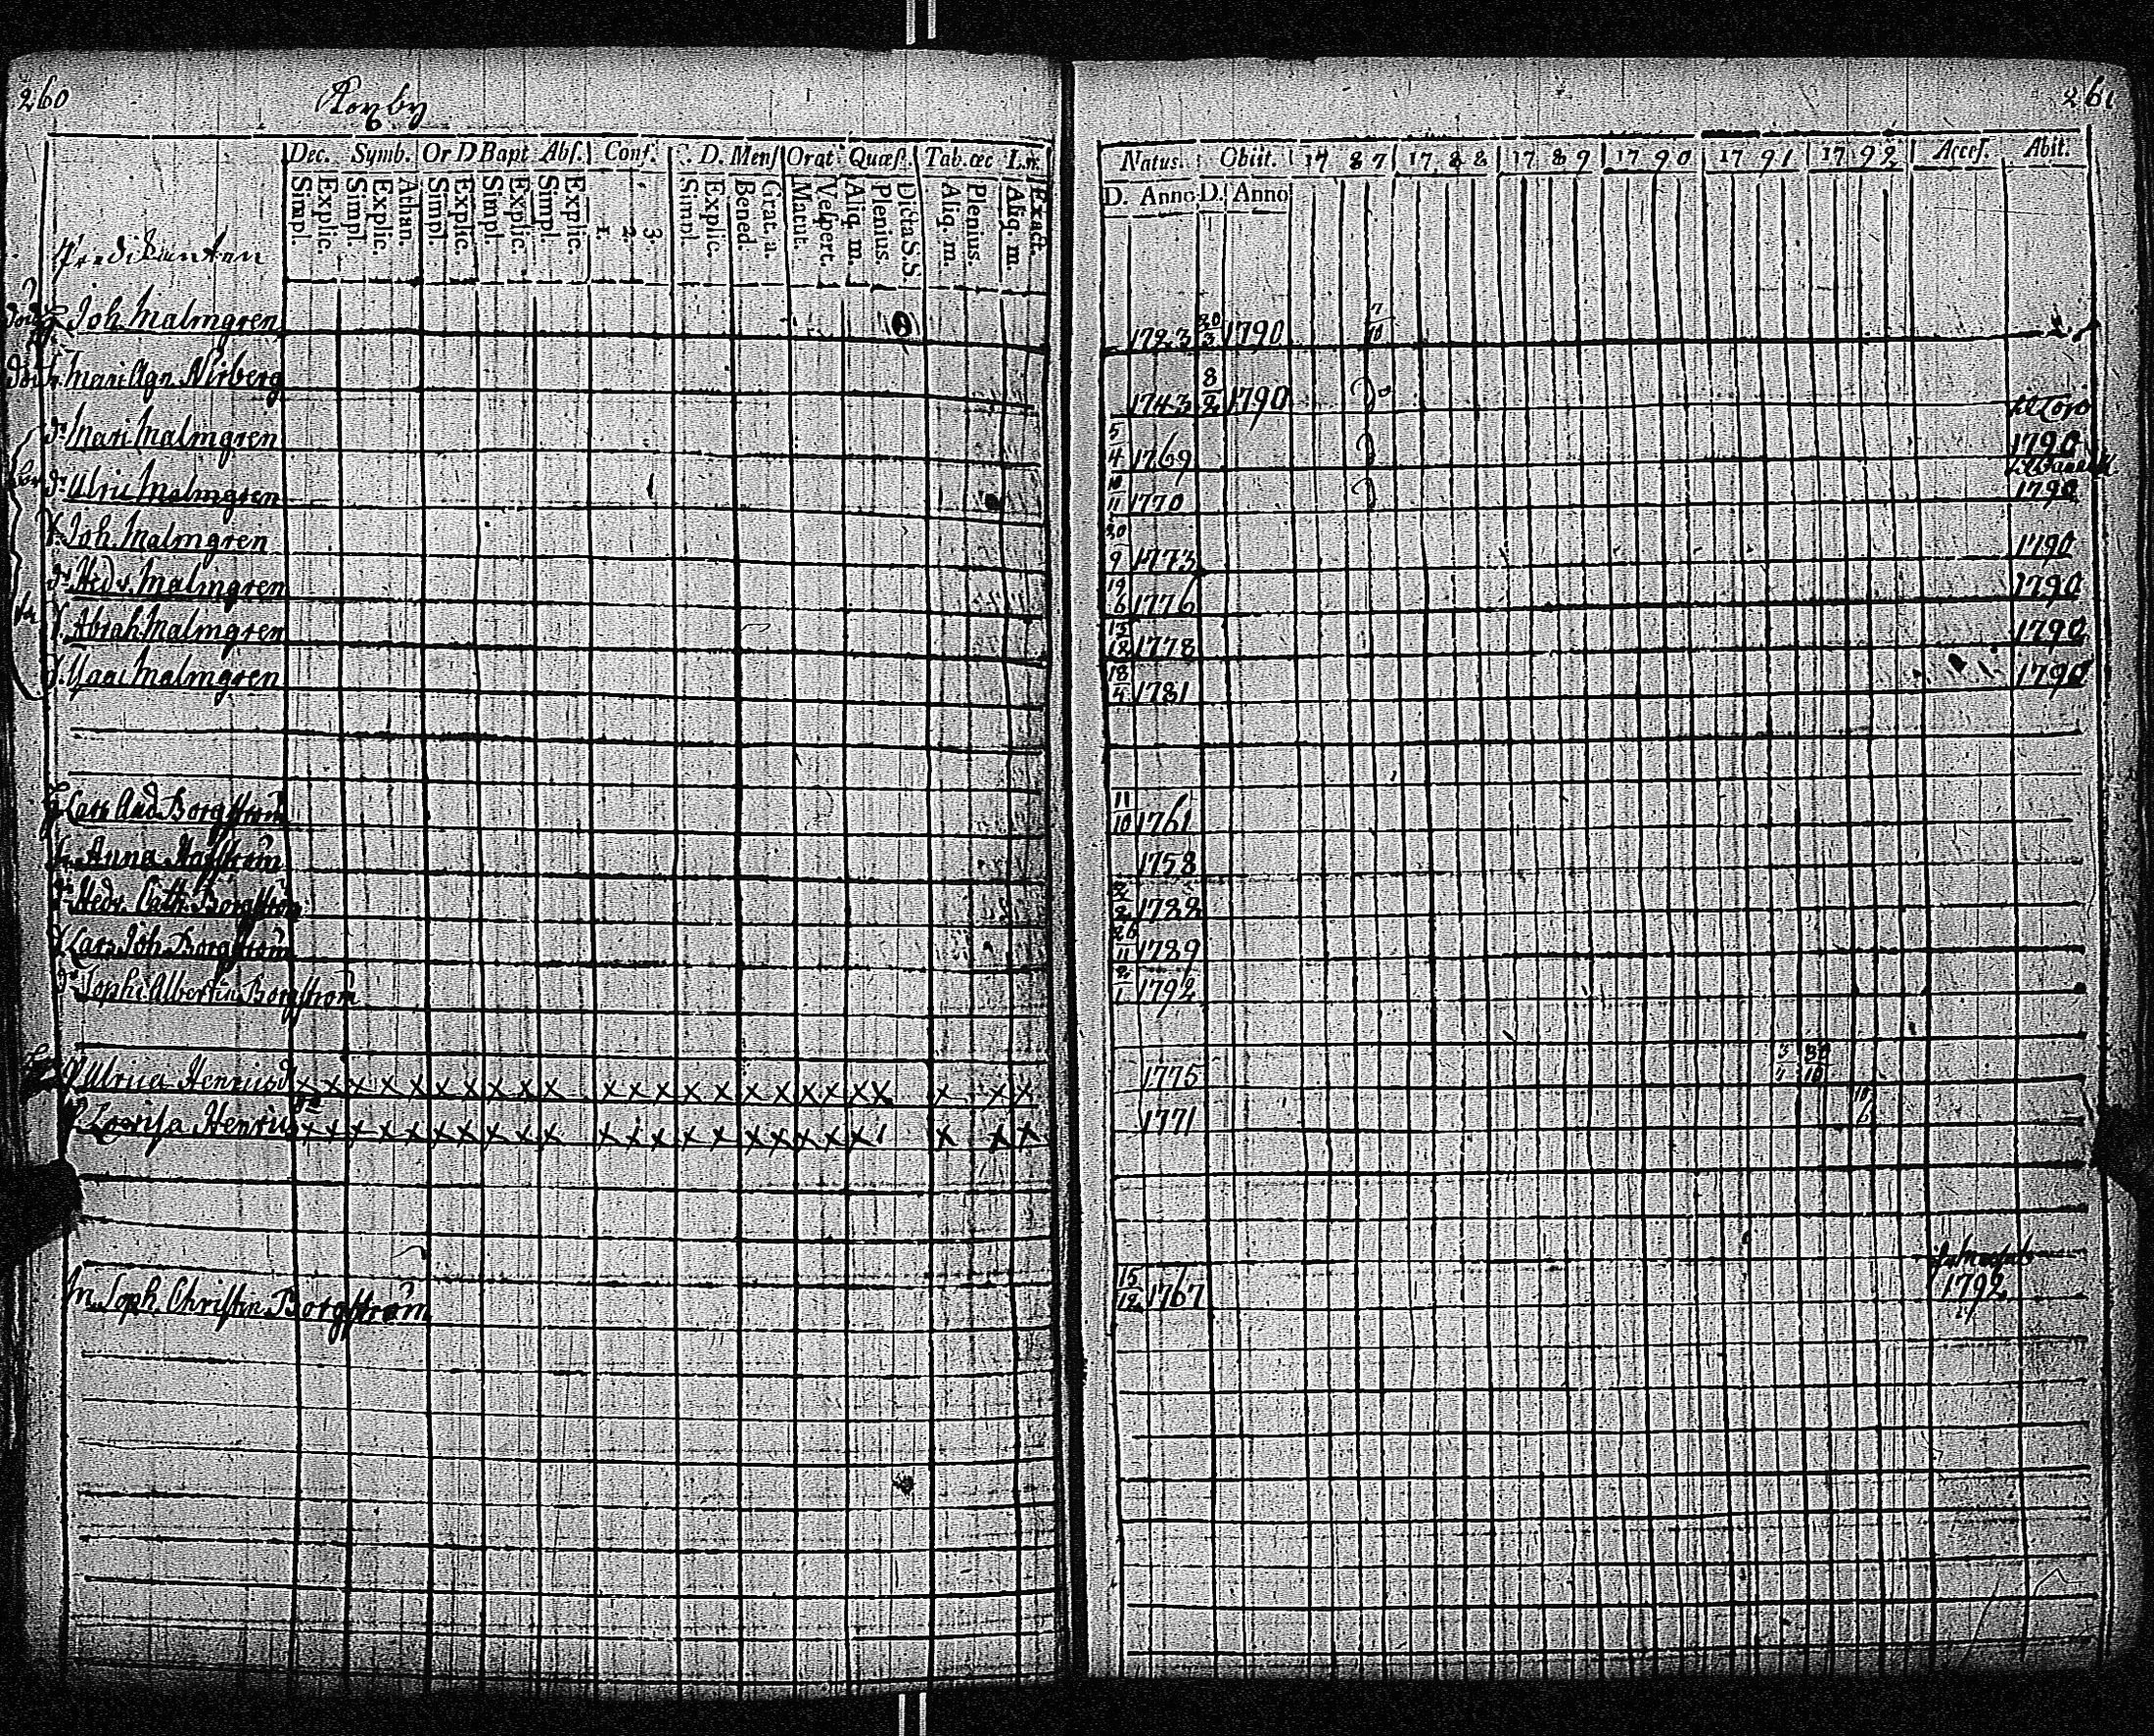 260
261
Dec. Symb. Or D Bapt Abs. Conf. C. D. Mens Orat Quæs. Tab. œc L.n.
Simpl. Explic. Simpl. Explic. Athan. Simpl. Explic. Simpl. Explic. Simpl. Explic. 1. 2. 3. Simpl. Explic. Bened. Grat. a. Matut. Vespert. Aliq. m. Plenius. Dicta S.S. Aliq. m. Plenius. Aliq. m. Exact.
Natus. Obiit. 1787 1788 1789 1790 1791 1792 Acces. Abit.
D. Anno D. Anno
Predikanten
Joh. Malmgren 1723 20/3 1790 7/10
Mari Agn. Nirberg 1743 8/2 1790
dr Mari Malmgren 5/4 1769 1790
dr Ulric Malmgren 10/11 1770 1790
Joh. Malmgren 30/9 1773 1790
dr Hedv. Malmgren 19/6 1776 1790
Abrah. Malmgren 13/12 1778 1790
Malmgren 18/4 1781 1790
Lars And. Borgström 11/10 1761
Anna Hoffström 1758
dr Hedv. Cath. Borgström 1788
Lars Joh. Borgström 26/11 1789
dr Sophi Albertin Borgström 2/1 1792
Ulrica Henricsd x x x x x x x x x x x x x x x x x x x x x x x x 1775
Lovisa Henric x x x x x x x x x x x x x x x x x x x x x x x 1771 10/6
Soph. Christin. Borgström 15/12 1767 1792